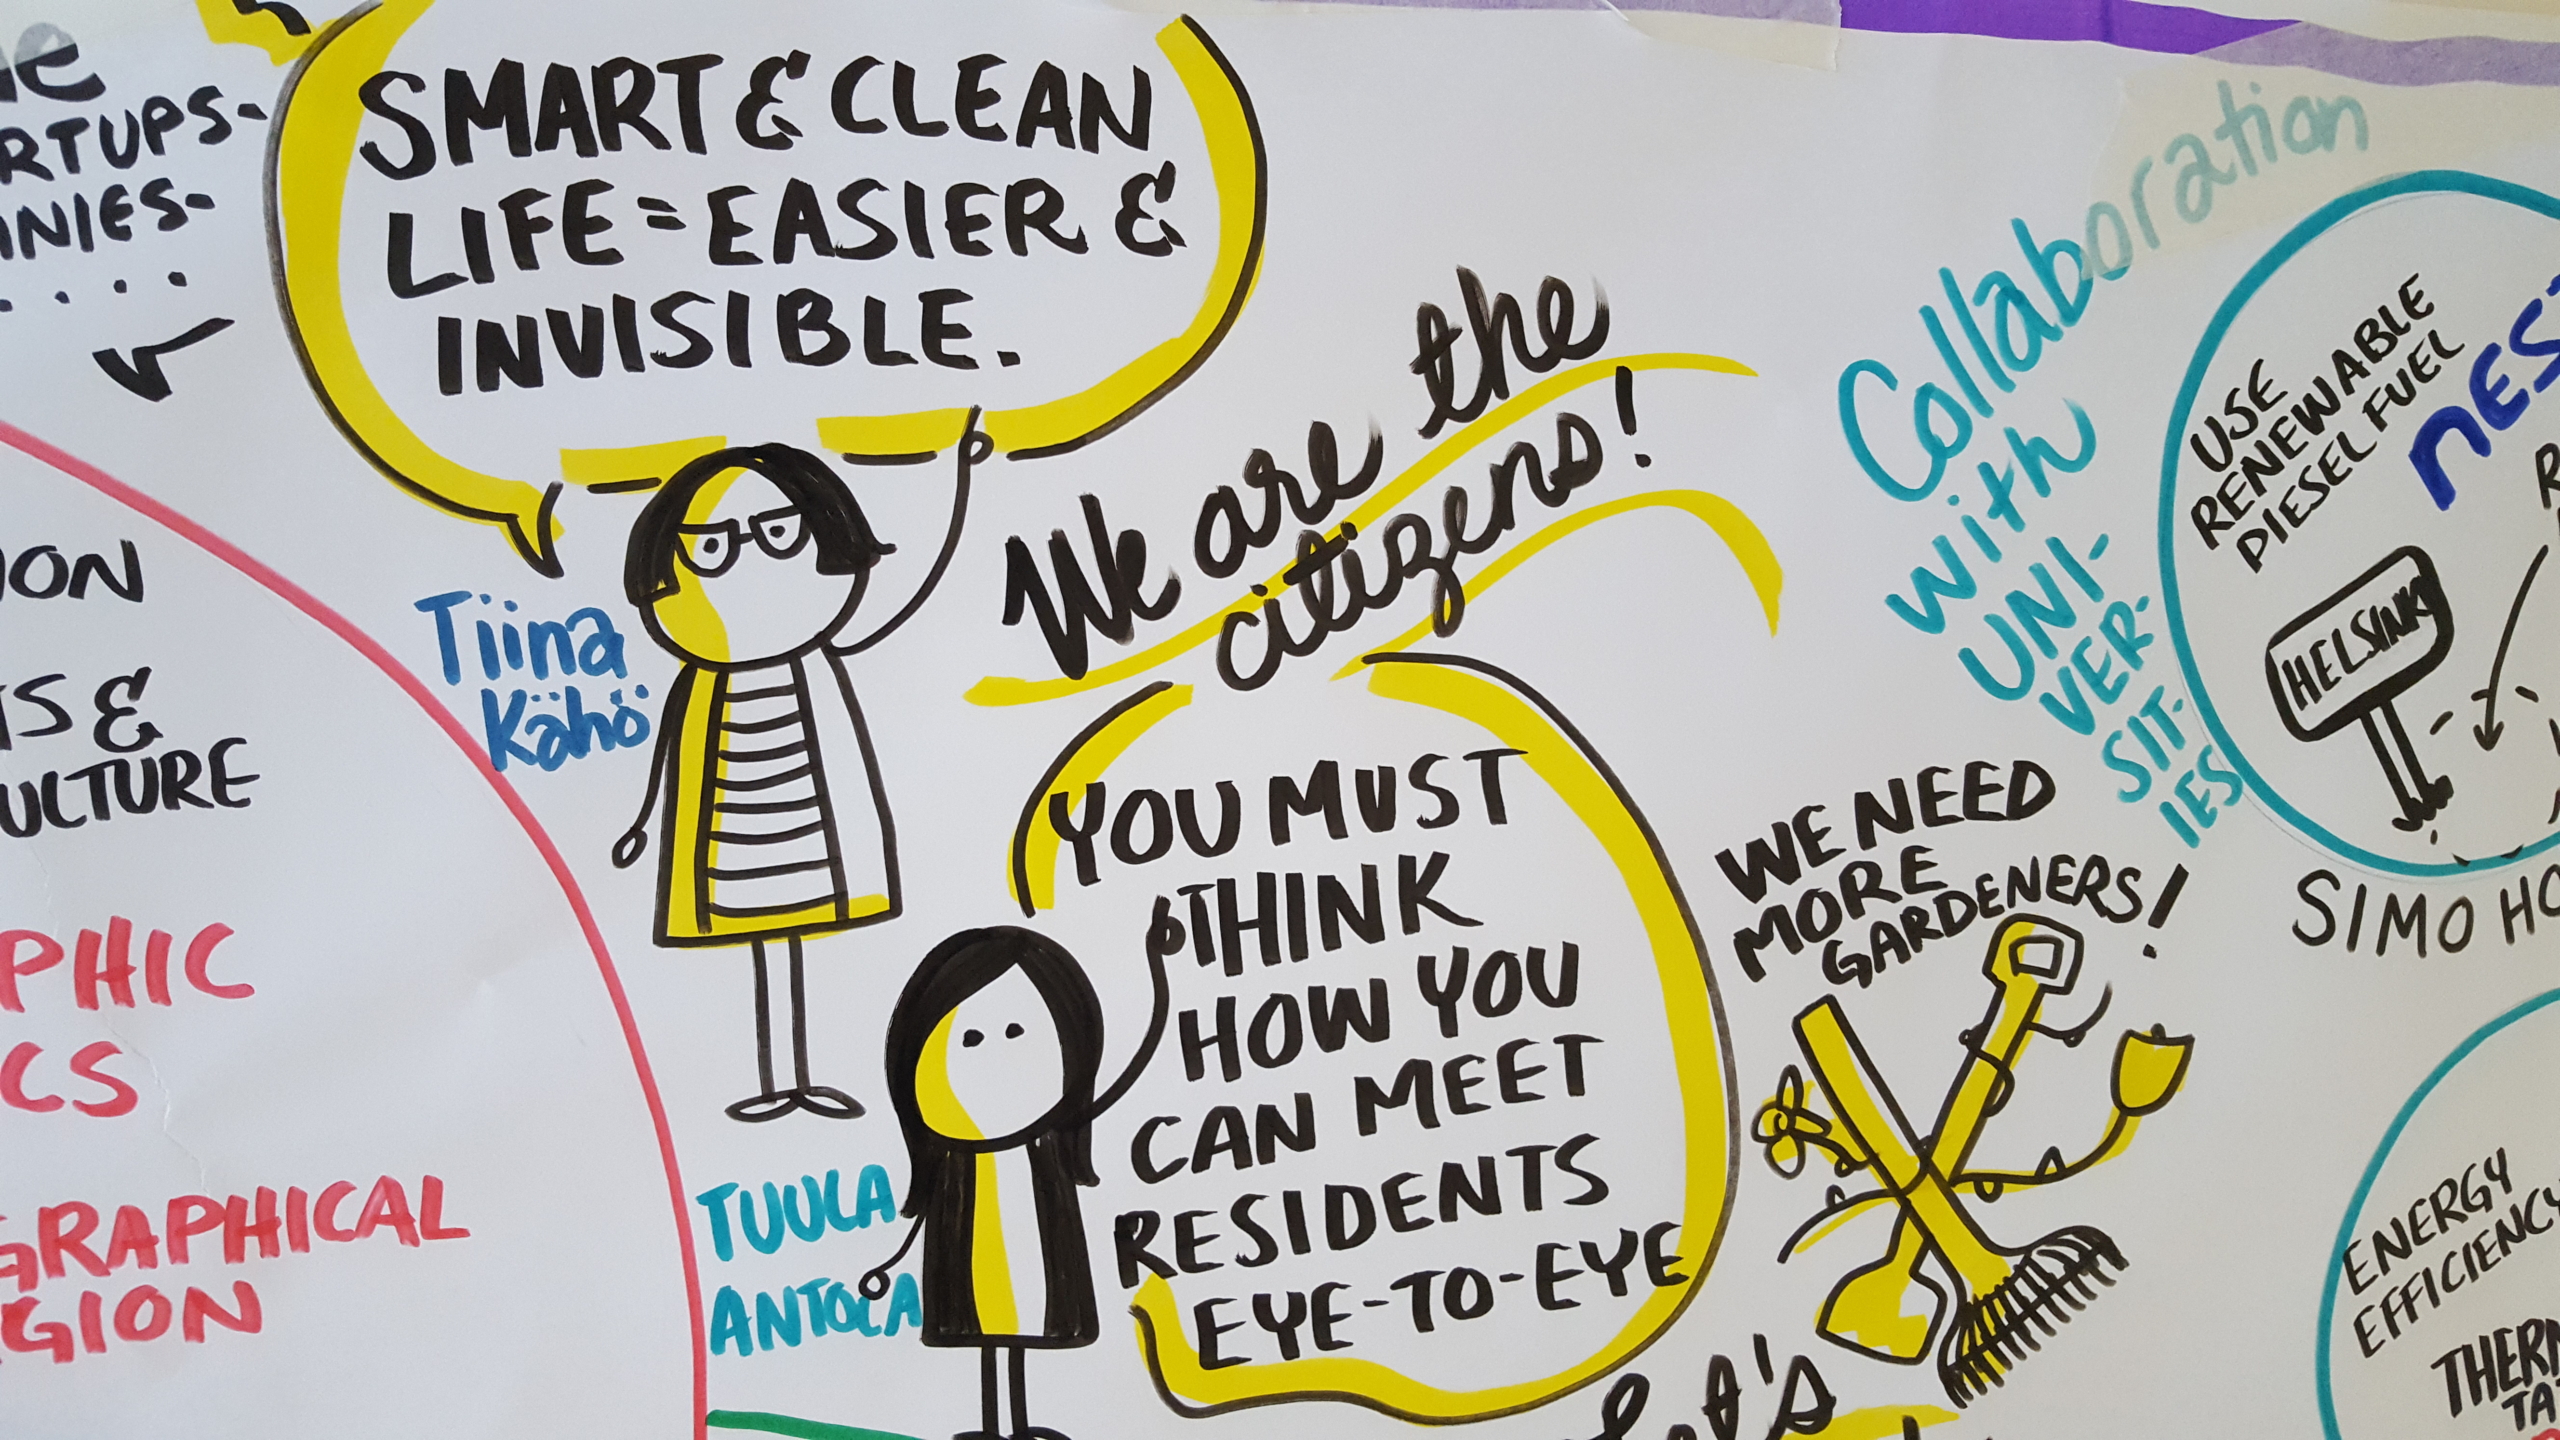 SMART & CLEAN
LIFE = EASIER &
INVISIBLE.
Tiina
Kähö
We are the
citizens!
YOU MUST
THINK
HOW YOU
CAN MEET
RESIDENTS
EYE-TO-EYE
TUULA
ANTOLA
WE NEED
MORE
GARDENERS!
Let's
Collaboration
with
UNI-
VER-
SIT-
IES
USE
RENEWABLE
DIESEL FUEL
NES
HELSINKI
SIMO HO
ENERGY
EFFICIENCY
THERM
TA
RTUPS-
NIES-
ION
TS &
ULTURE
PHIC
CS
GRAPHICAL
GION